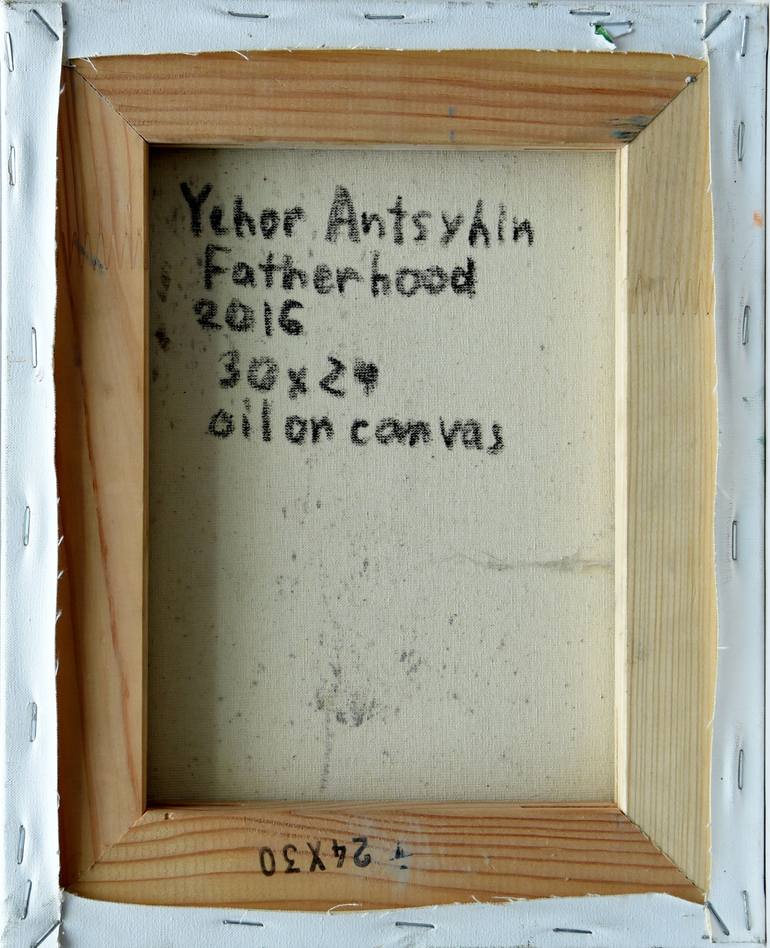 Yehor Antsyhin
Fatherhood
2016
30x24
oil on canvas
24X30